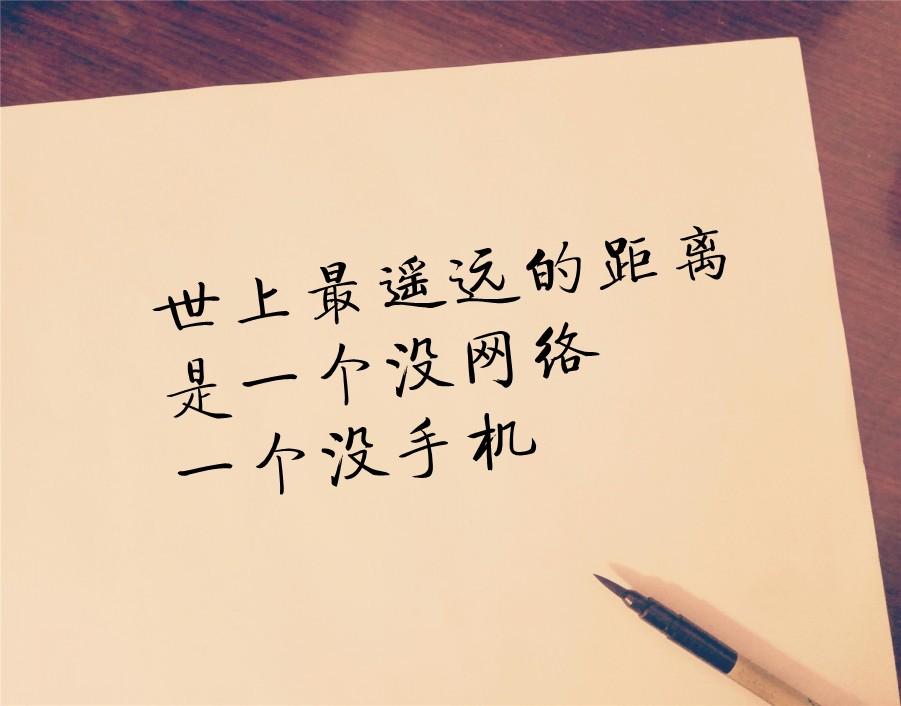 世上最遥远的距离
是一个没网络
一个没手机